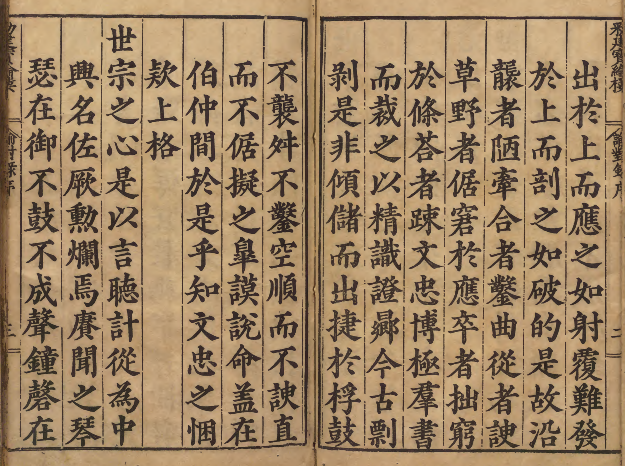 諭對錄序
二
出於上而應之如射覆難發
於上而剖之如破的是故沿
襲者陋牽合者鑿曲從者諛
草野者倨窘於應卒者拙窮
於條荅者踈文忠博極羣書
而裁之以精識證曏今古剽
剥是非傾儲而出捷於桴鼓
不襲舛不鑿空順而不諛直
而不倨擬之臯謨說命盖在
伯仲間於是乎知文忠之悃
欵上格
世宗之心是以言聽計從為中
興名佐厥勳爛焉賡聞之琴
瑟在御不鼓不成聲鐘磬在